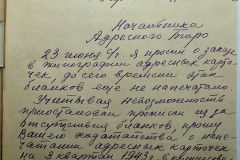 Начальнику
Адресного Бюро
23 июня с/г я просил о заказе
в типографии адресных карто-
чек, до сего времени
бланков еще не напечатано
Учитывая невозможность
прописки из-за
отсутствия бланков, прошу
Вашего ходатайства о
печатании адресных карточек
на 3 квартал 1943 г. в количестве